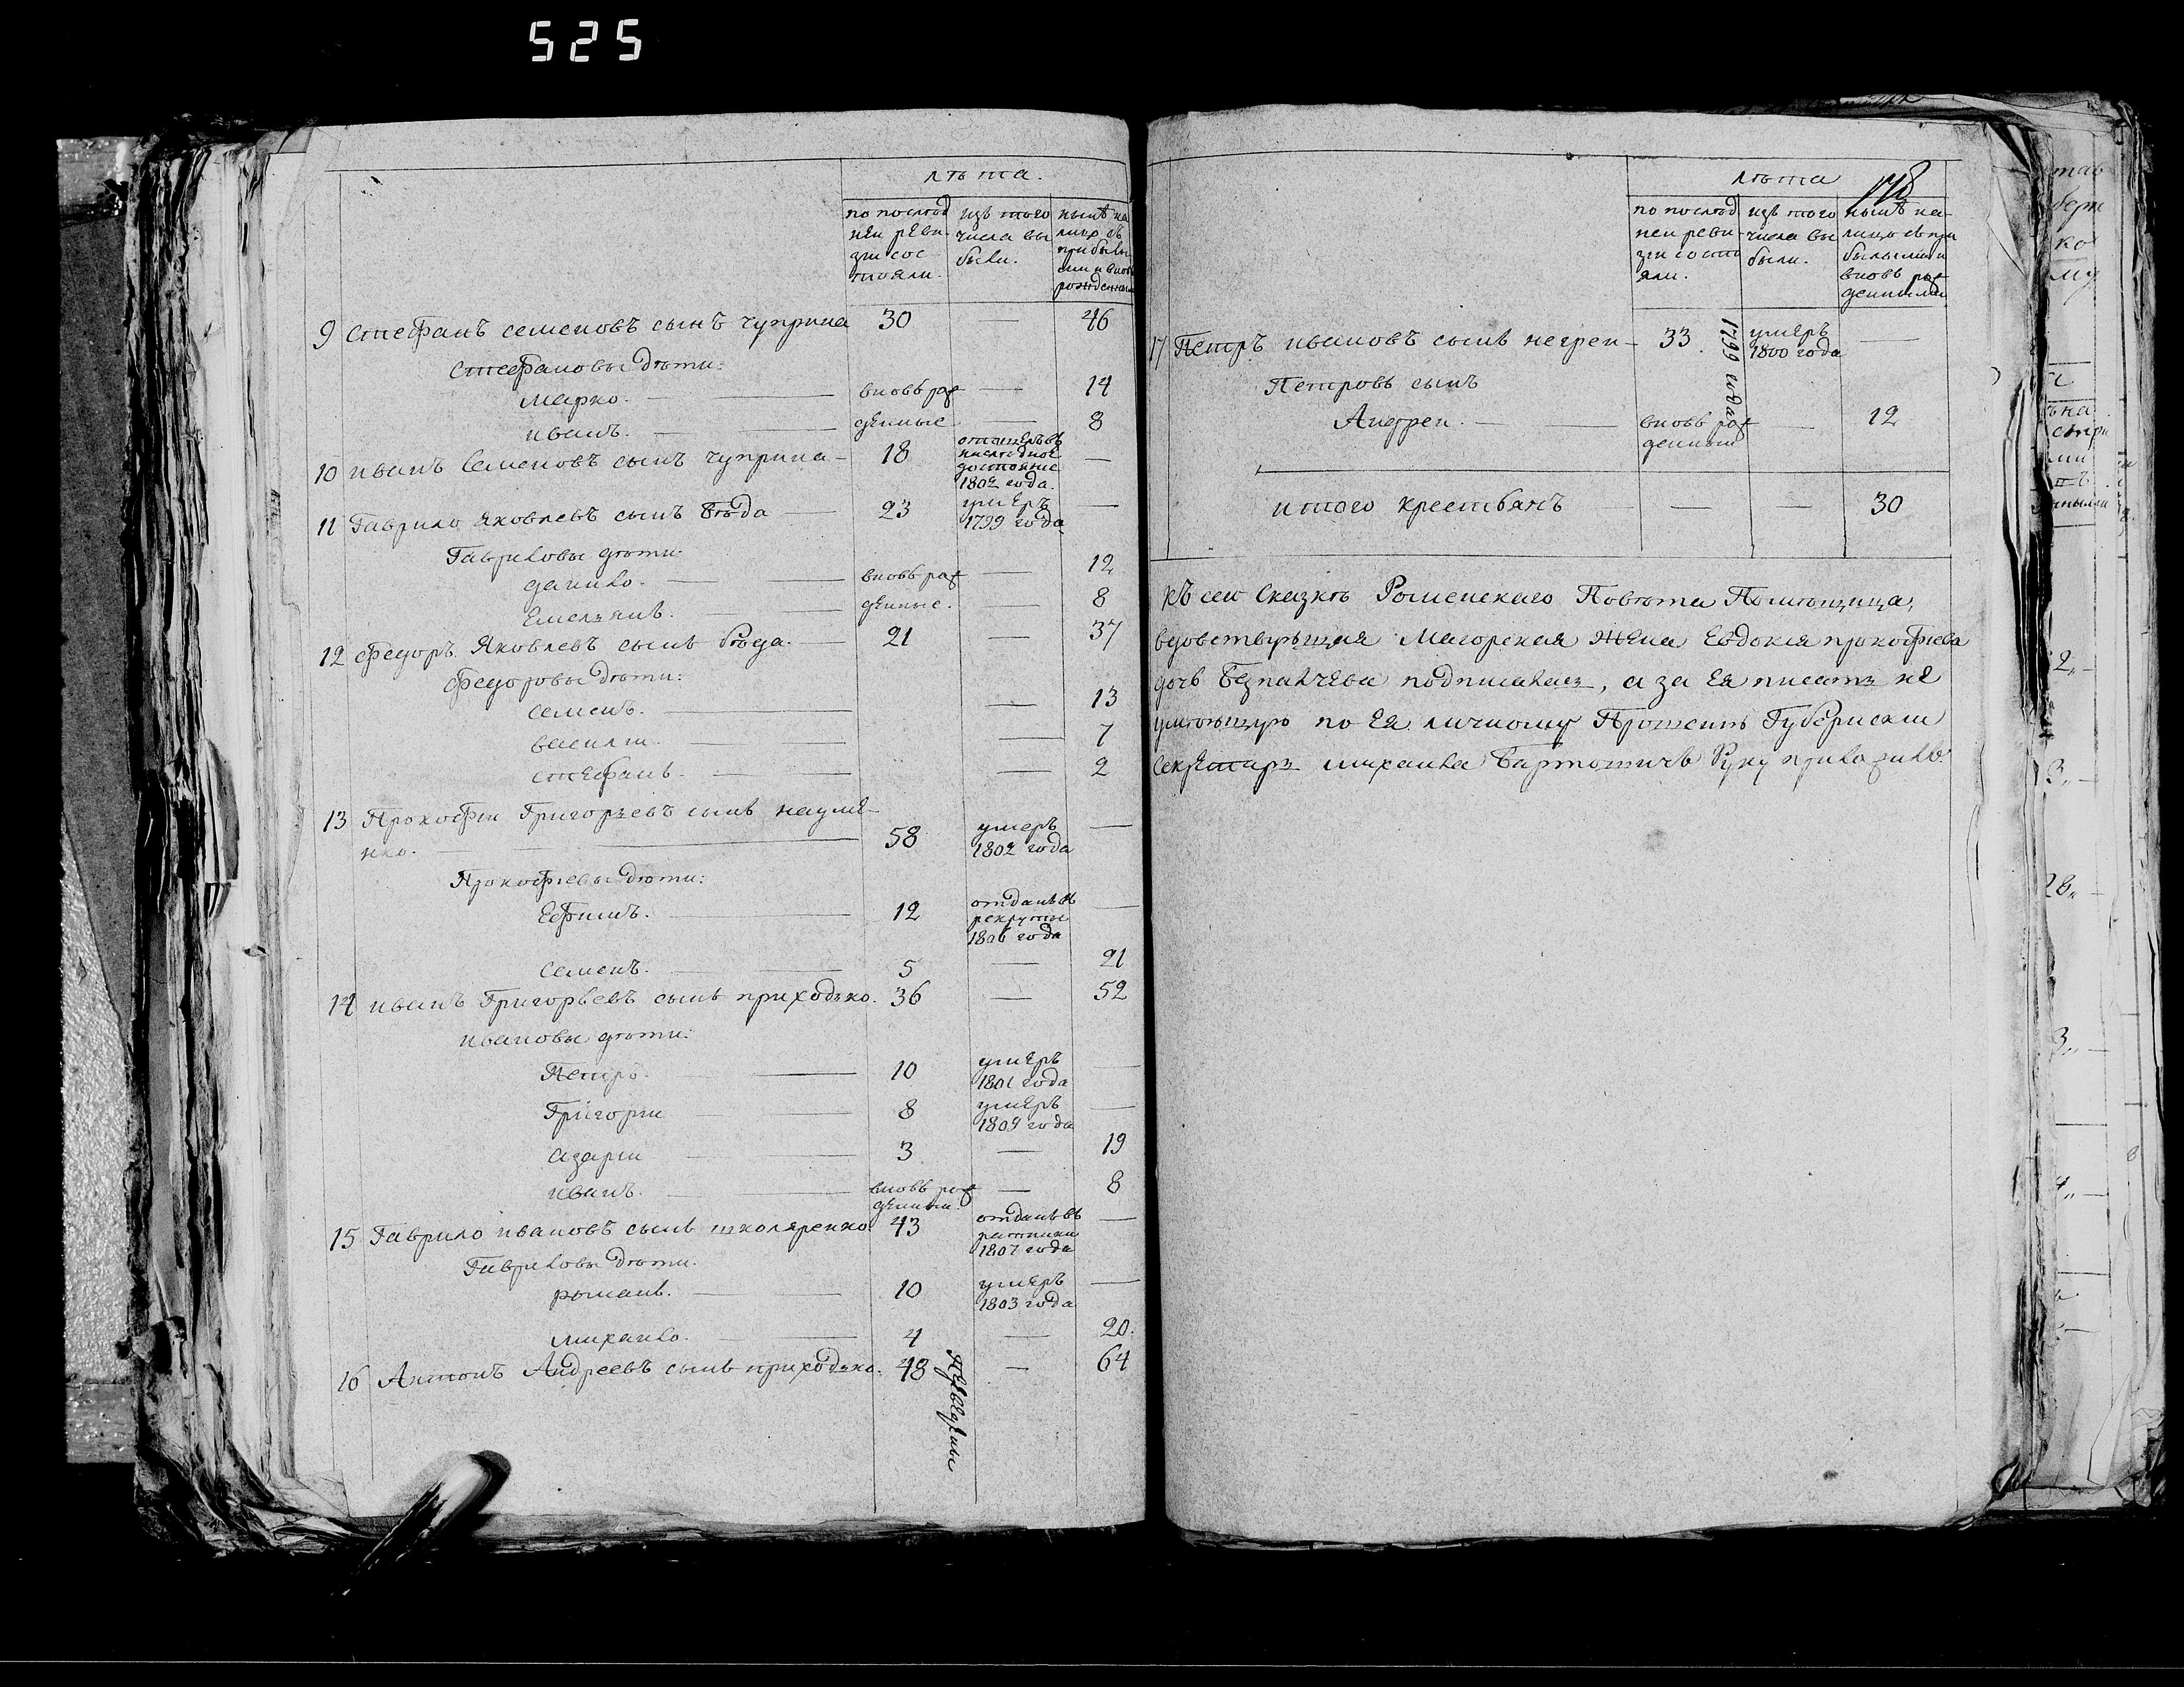 525
лѣта.
по послѣд ней реви- зіи сос тояли.
изъ того числа вы были.
нынѣ на лицо съ прибылы ми и вновь рожденными
9 Стефанъ семеновъ сынъ чуприна 30 — 46
Стефановы дѣти:
Марко. — вновь рож — 14
иванъ. — денные — 8
10 иванъ Семеновъ сынъ чуприна — 18 —
1802 года.
11 Гаврило яковлевъ сынъ бѣда — 23 умеръ 1799 года —
Гавриловы дѣти.
данило. — вновь рож — 12
Емельянъ. — денные. — 8
12 федоръ Яковлевъ сынъ бѣда. — 21 — 37
федоровы дѣти:
семенъ. — — 13
василій. — — 7
стефанъ. — — 2
13 Прокофій Григорьевъ сынъ науме-
нко. — 58 умеръ 1802 года —
Прокофіевы дѣти:
Ефимъ. — 12 отданъ въ рекруты 1806 года —
семенъ. — 5 — 21
14 иванъ Григорьевъ сынъ приходько. 36 — 52
ивановы дѣти:
Петръ. — 10 умеръ 1801 года —
Григорій — 8 умеръ 1809 года —
азарій — 3 — 19
иванъ. — вновь рож денный. — 8
15 Гаврило ивановъ сынъ школяренко. 43 отданъ въ ратники 1807 года —
Гавриловы дѣти.
романъ. — 10 умеръ 1803 года —
михайло. — 4 — 20.
16 Антонъ Андреевъ сынъ приходько. 48 — 64
178
лѣта
по послѣд ней реви- зіи состо яли.
изъ того числа вы были.
нынѣ на- лицо съ при былыми и вновь рож денными
17 Петръ ивановъ сынъ негреи — 33. умеръ 1800 года —
1799 года
Петровъ сынъ
Андреи. — вновь рож денный — 12
итого крестьянъ — — 30
Къ сеи Сказкѣ Роменскаго Повѣта Помѣщица,
вдовствующая Маіорская жена Евдокія прокофіева
дочь подписалась, а за Ея писать не
умѣющую по Ея личному Прошенію Губернскій
Секретарь михаила Бартошичъ Руку приложилъ.